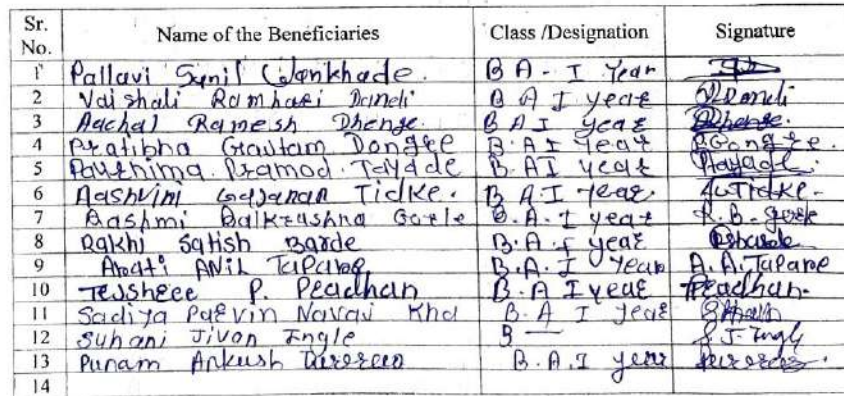 Sr. No. Name of the Beneficiaries Class /Designation Signature
1 Pallavi Sunil Wankhade. B A - I Year
2 Vaishali Ramhari Dandi B A I year
3 Aachal Ramesh Dhenge. B A I year Dhenge.
4 Pratibha Grautam Dongre B.A I Year
5 Pramod. Tayade B.AI year Ptayade.
6 Aashvini Gajanan Tidke. B.A I Year. Tidke.
7 Balkrashna B.A. I year R.B.
8 Rakhi Satish Barde B.A I year
9 Anil Tapare B.A. I Year A.A.Tapare
10 Tejshree P. Pradhan B.A I year Pradhan.
11 Sadiya Parvin Navav Kha B.A I Year
12 Suhani Jivan Ingle B — S.J. Ingle
13 Punam Ankush B.A.I year
14